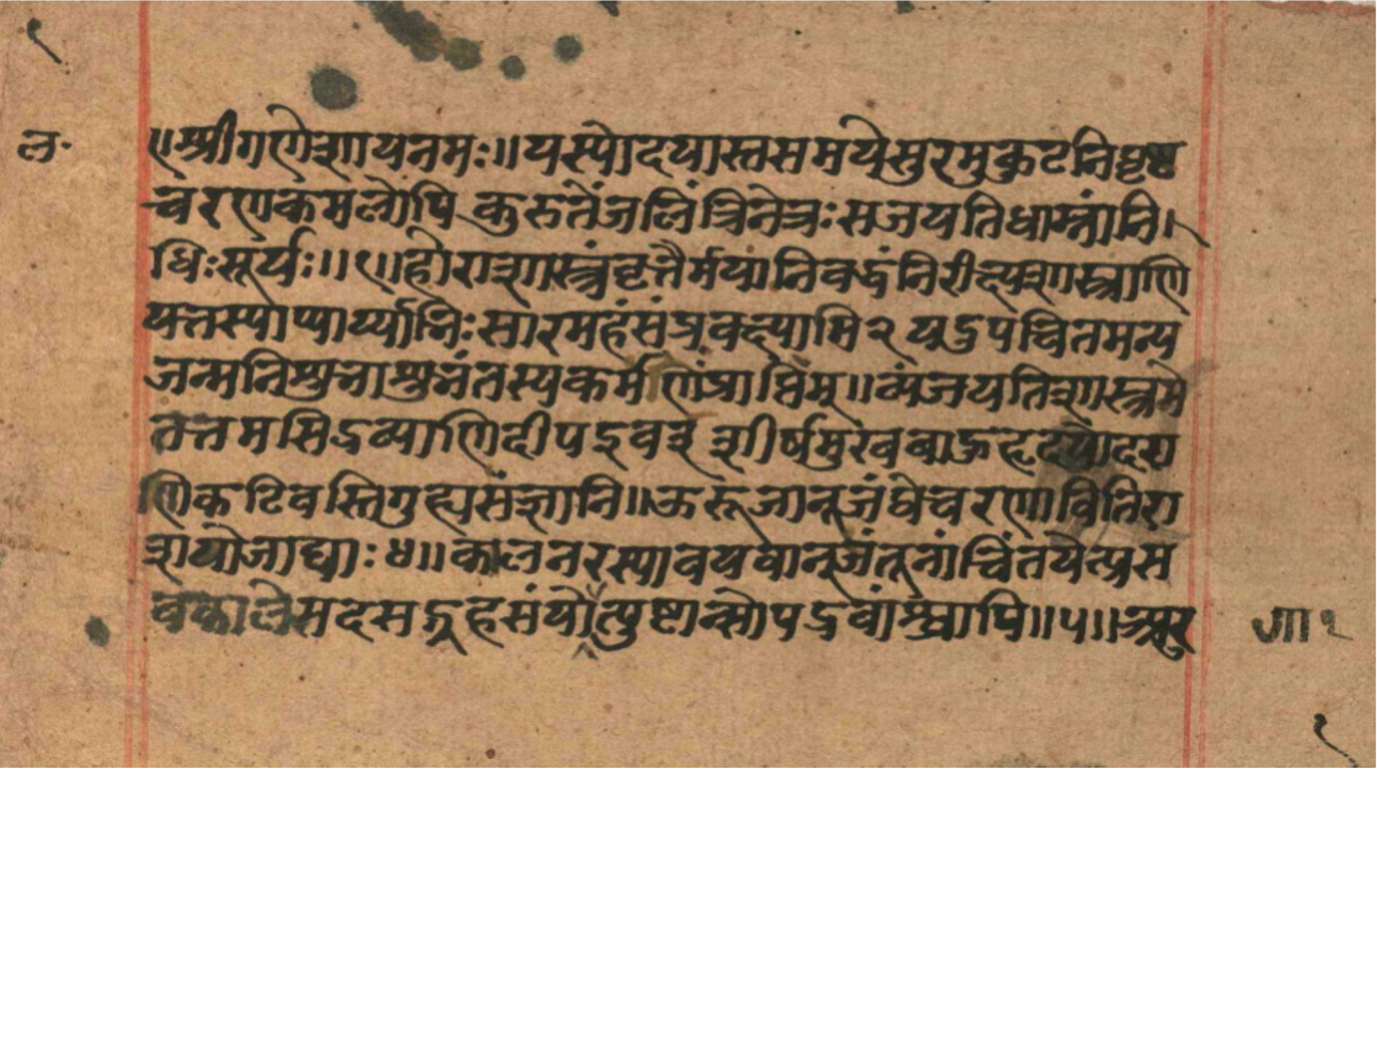 ल॰
॥श्रीगणेशायनमः॥यस्योदयास्तसमयेसुरमुकुटनिघृष्ट
चरणकमलोपि कुरुतेंजलिं त्रिनेत्रः सजयतिधाम्नांनि।
धिः सूर्यः॥१॥होराशास्त्रंवृत्तैर्मयानिबद्धंनिरीक्ष्यशास्त्राणि
यत्तस्याप्यार्य्याभिः सारमहंसंप्रवक्ष्यामि२ यदुपचितमन्य
जन्मनिशुभाशुभंतस्यकर्मणांप्राप्तिम्॥व्यंजयतिशास्त्रमे
तत्तमसिद्रव्याणिदीपइव३ शीर्षमुखबाऊहृदयोदरा
णिकटिवस्तिगुह्यसंज्ञानि॥ऊरूजानूजंघेचरणावितिरा
शयोजाद्याः४॥कालनरस्यावयवान्जंतूनांचिंतयेत्प्रस
वकालेसदसद्गृहसंयोत्पुष्टान्सोपद्रवांश्चापि॥५॥अरु
गा१